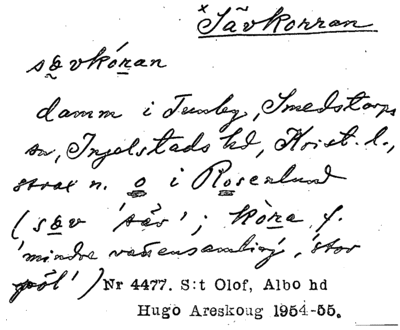 × Sävkorran
sævkóran
damm i Tunby, Smedstorps
sn, Ingelstads hd, Krist. l.,
strax n. o i Rosenlund
(sæv 'säv'; kòra f.
'mindre vattensamling', 'stor
pöl') Nr 4477. S:t Olof, Albo hd
Hugo Areskoug 1954-55.